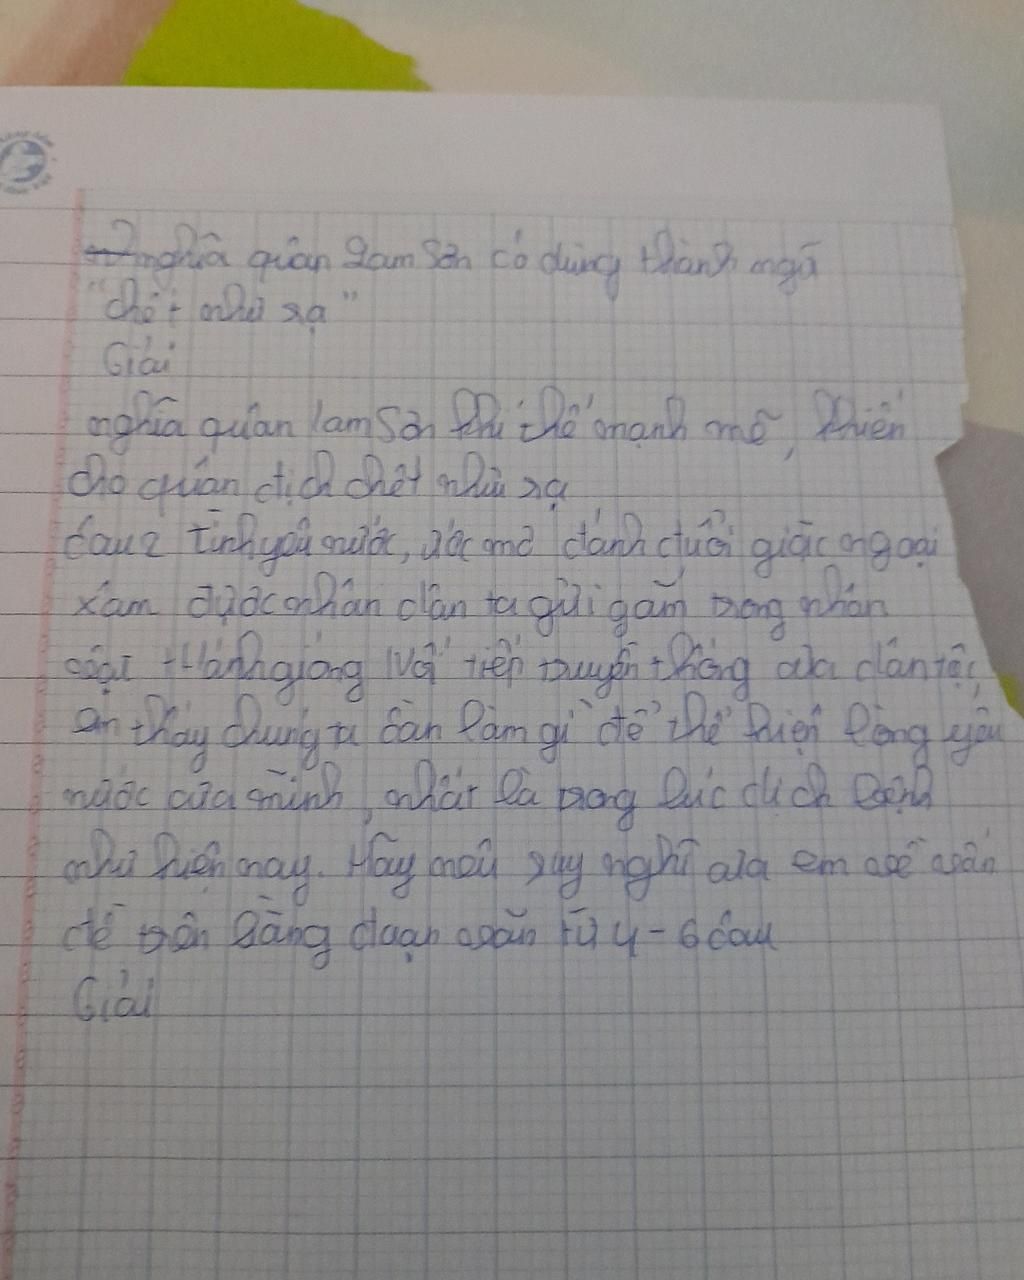 nghĩa quân Lam Sơn có dùng thành ngữ
"chết như rạ"
Giải
nghĩa quân lam Sơn khí thế mạnh mẽ, khiến
cho quân địch chết như rạ
câu 2 tình yêu nước, ước mơ đánh đuổi giặc ngoại
xâm được nhân dân ta gửi gắm trong nhân
vật thánh gióng Nối tiếp truyền thống của dân tộc
em thấy chúng ta cần làm gì để thể hiện lòng yêu
nước của mình, nhất là trong lúc dịch bệnh
như hiện nay. Hãy nêu suy nghĩ của em về vấn
đề trên bằng đoạn văn từ 4-6 câu
Giải